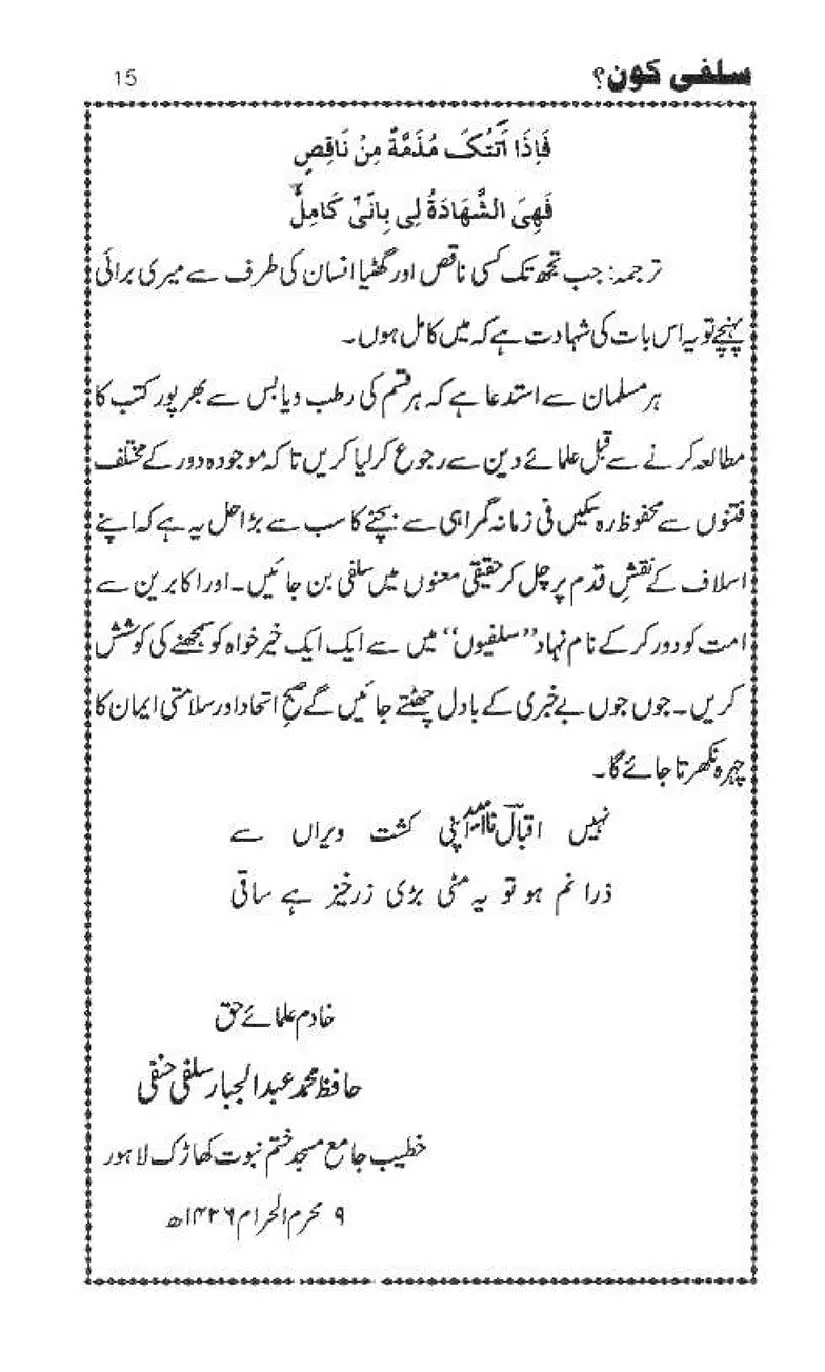 سلفی کون؟ 15
فَاِذَا اَتَتْکَ مُذَمَّةٌ مِنْ نَاقِصٍ
فَهِیَ الشَّهَادَةُ لِی بِاَنِّیْ کَامِلٌ
ترجمہ: جب تجھ تک کسی ناقص اور گھٹیا انسان کی طرف سے میری برائی
پہنچے تو یہ اس بات کی شہادت ہے کہ میں کامل ہوں۔
ہر مسلمان سے استدعا ہے کہ ہر قسم کی رطب و یابس سے بھرپور کتب کا
مطالعہ کرنے سے قبل علمائے دین سے رجوع کر لیا کریں تا کہ موجودہ دور کے مختلف
فتنوں سے محفوظ رہ سکیں فی زمانہ گمراہی سے بچنے کا سب سے بڑا حل یہ ہے کہ اپنے
اسلاف کے نقشِ قدم پر چل کر حقیقی معنوں میں سلفی بن جائیں۔ اور اکابرین سے
امت کو دور کر کے نام نہاد ’’سلفیوں‘‘ میں سے ایک ایک خیر خواہ کو سمجھنے کی کوشش
کریں۔ جوں جوں بے خبری کے بادل چھٹتے جائیں گے صحیح اتحاد اور سلامتی ایمان کا
چہرہ نکھرتا جائے گا۔
نہیں اقبالؔ ناامید اپنی کشت ویراں سے
ذرا نم ہو تو یہ مٹی بڑی زرخیز ہے ساقی
خادم علمائے حق
حافظ محمد عبدالجبار سلفی حنفی
خطیب جامع مسجد ختم نبوت کھاڑک لاہور
۹ محرم الحرام ۱۴۲۶ھ